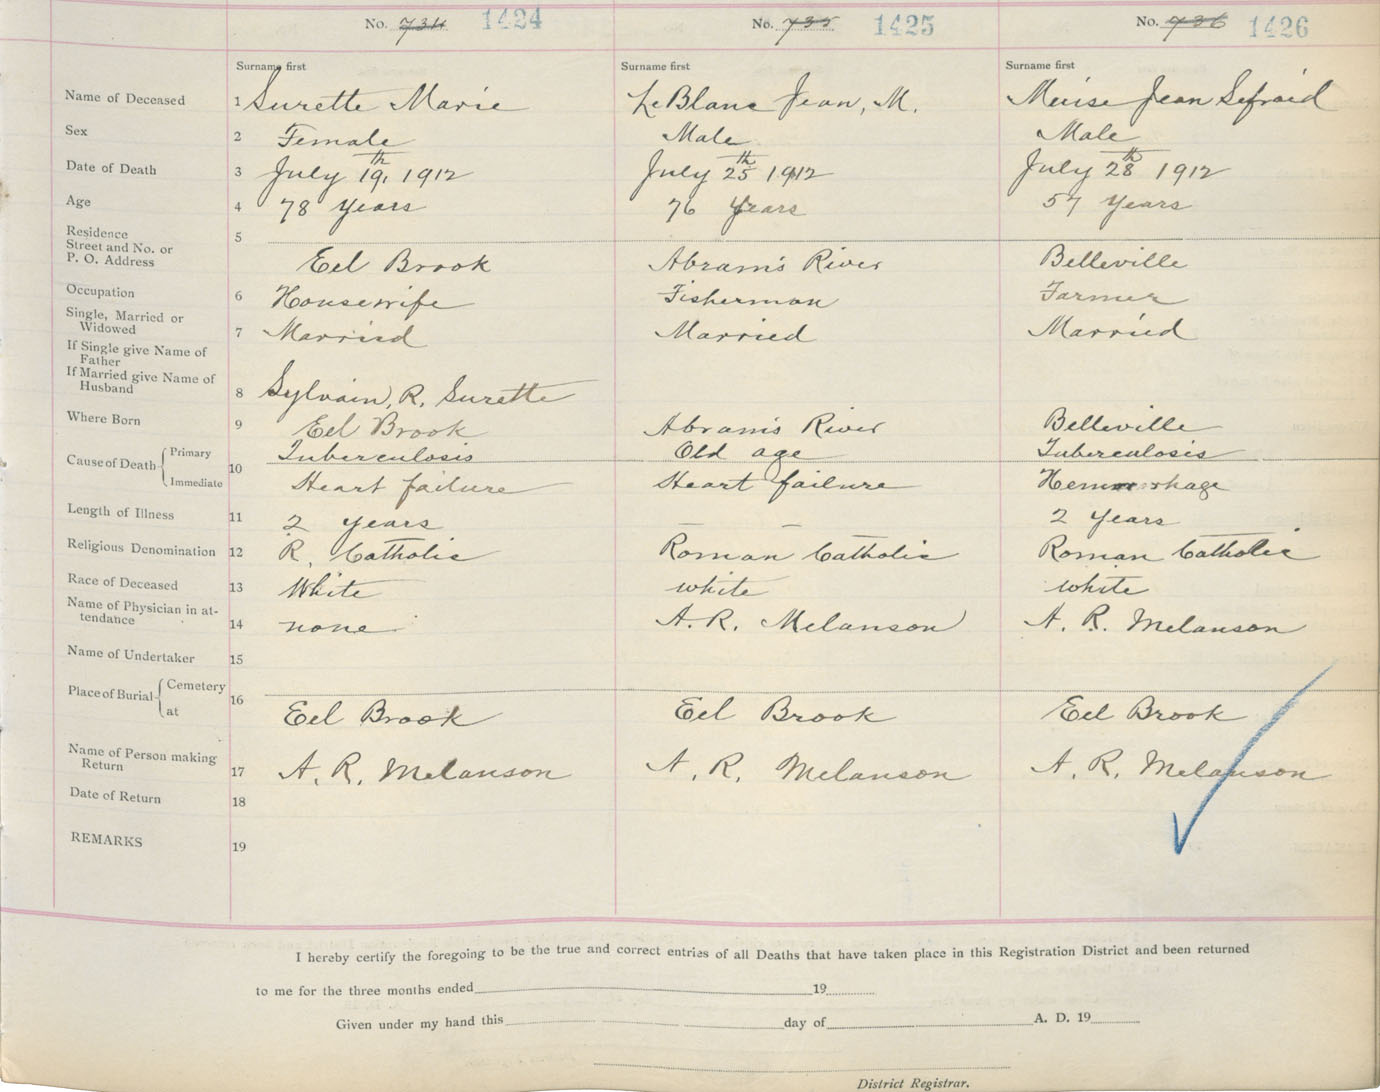 No. 734 1424 No. 735 1425 No. 736 1426
Surname first Surname first Surname first
Name of Deceased 1 Surette Marie LeBlanc Jean, M. Muise Jean Sefroid
Sex 2 Female Male Male
Date of Death 3 July 19th, 1912 July 25th 1912 July 28th 1912
Age 4 78 Years 76 Years 57 Years
Residence 5
Street and No. or
P. O. Address Eel Brook Abram's River Belleville
Occupation 6 Housewife Fisherman Farmer
Single, Married or
Widowed 7 Married Married Married
If Single give Name of
Father
If Married give Name of
Husband 8 Sylvain, R. Surette
Where Born 9 Eel Brook Abram's River Belleville
Cause of Death { Primary 10 Tuberculosis Old age Tuberculosis
Immediate Heart failure Heart failure Hemorrhage
Length of Illness 11 2 years — — 2 Years
Religious Denomination 12 R. Catholic Roman Catholic Roman Catholic
Race of Deceased 13 White white white
Name of Physician in at-
tendance 14 none A. R. Melanson A. R. Melanson
Name of Undertaker 15
Place of Burial { Cemetery 16
at Eel Brook Eel Brook Eel Brook
Name of Person making
Return 17 A. R. Melanson A. R. Melanson A. R. Melanson
Date of Return 18
REMARKS 19
I hereby certify the foregoing to be the true and correct entries of all Deaths that have taken place in this Registration District and been returned
to me for the three months ended 19
Given under my hand this day of A. D. 19
District Registrar.